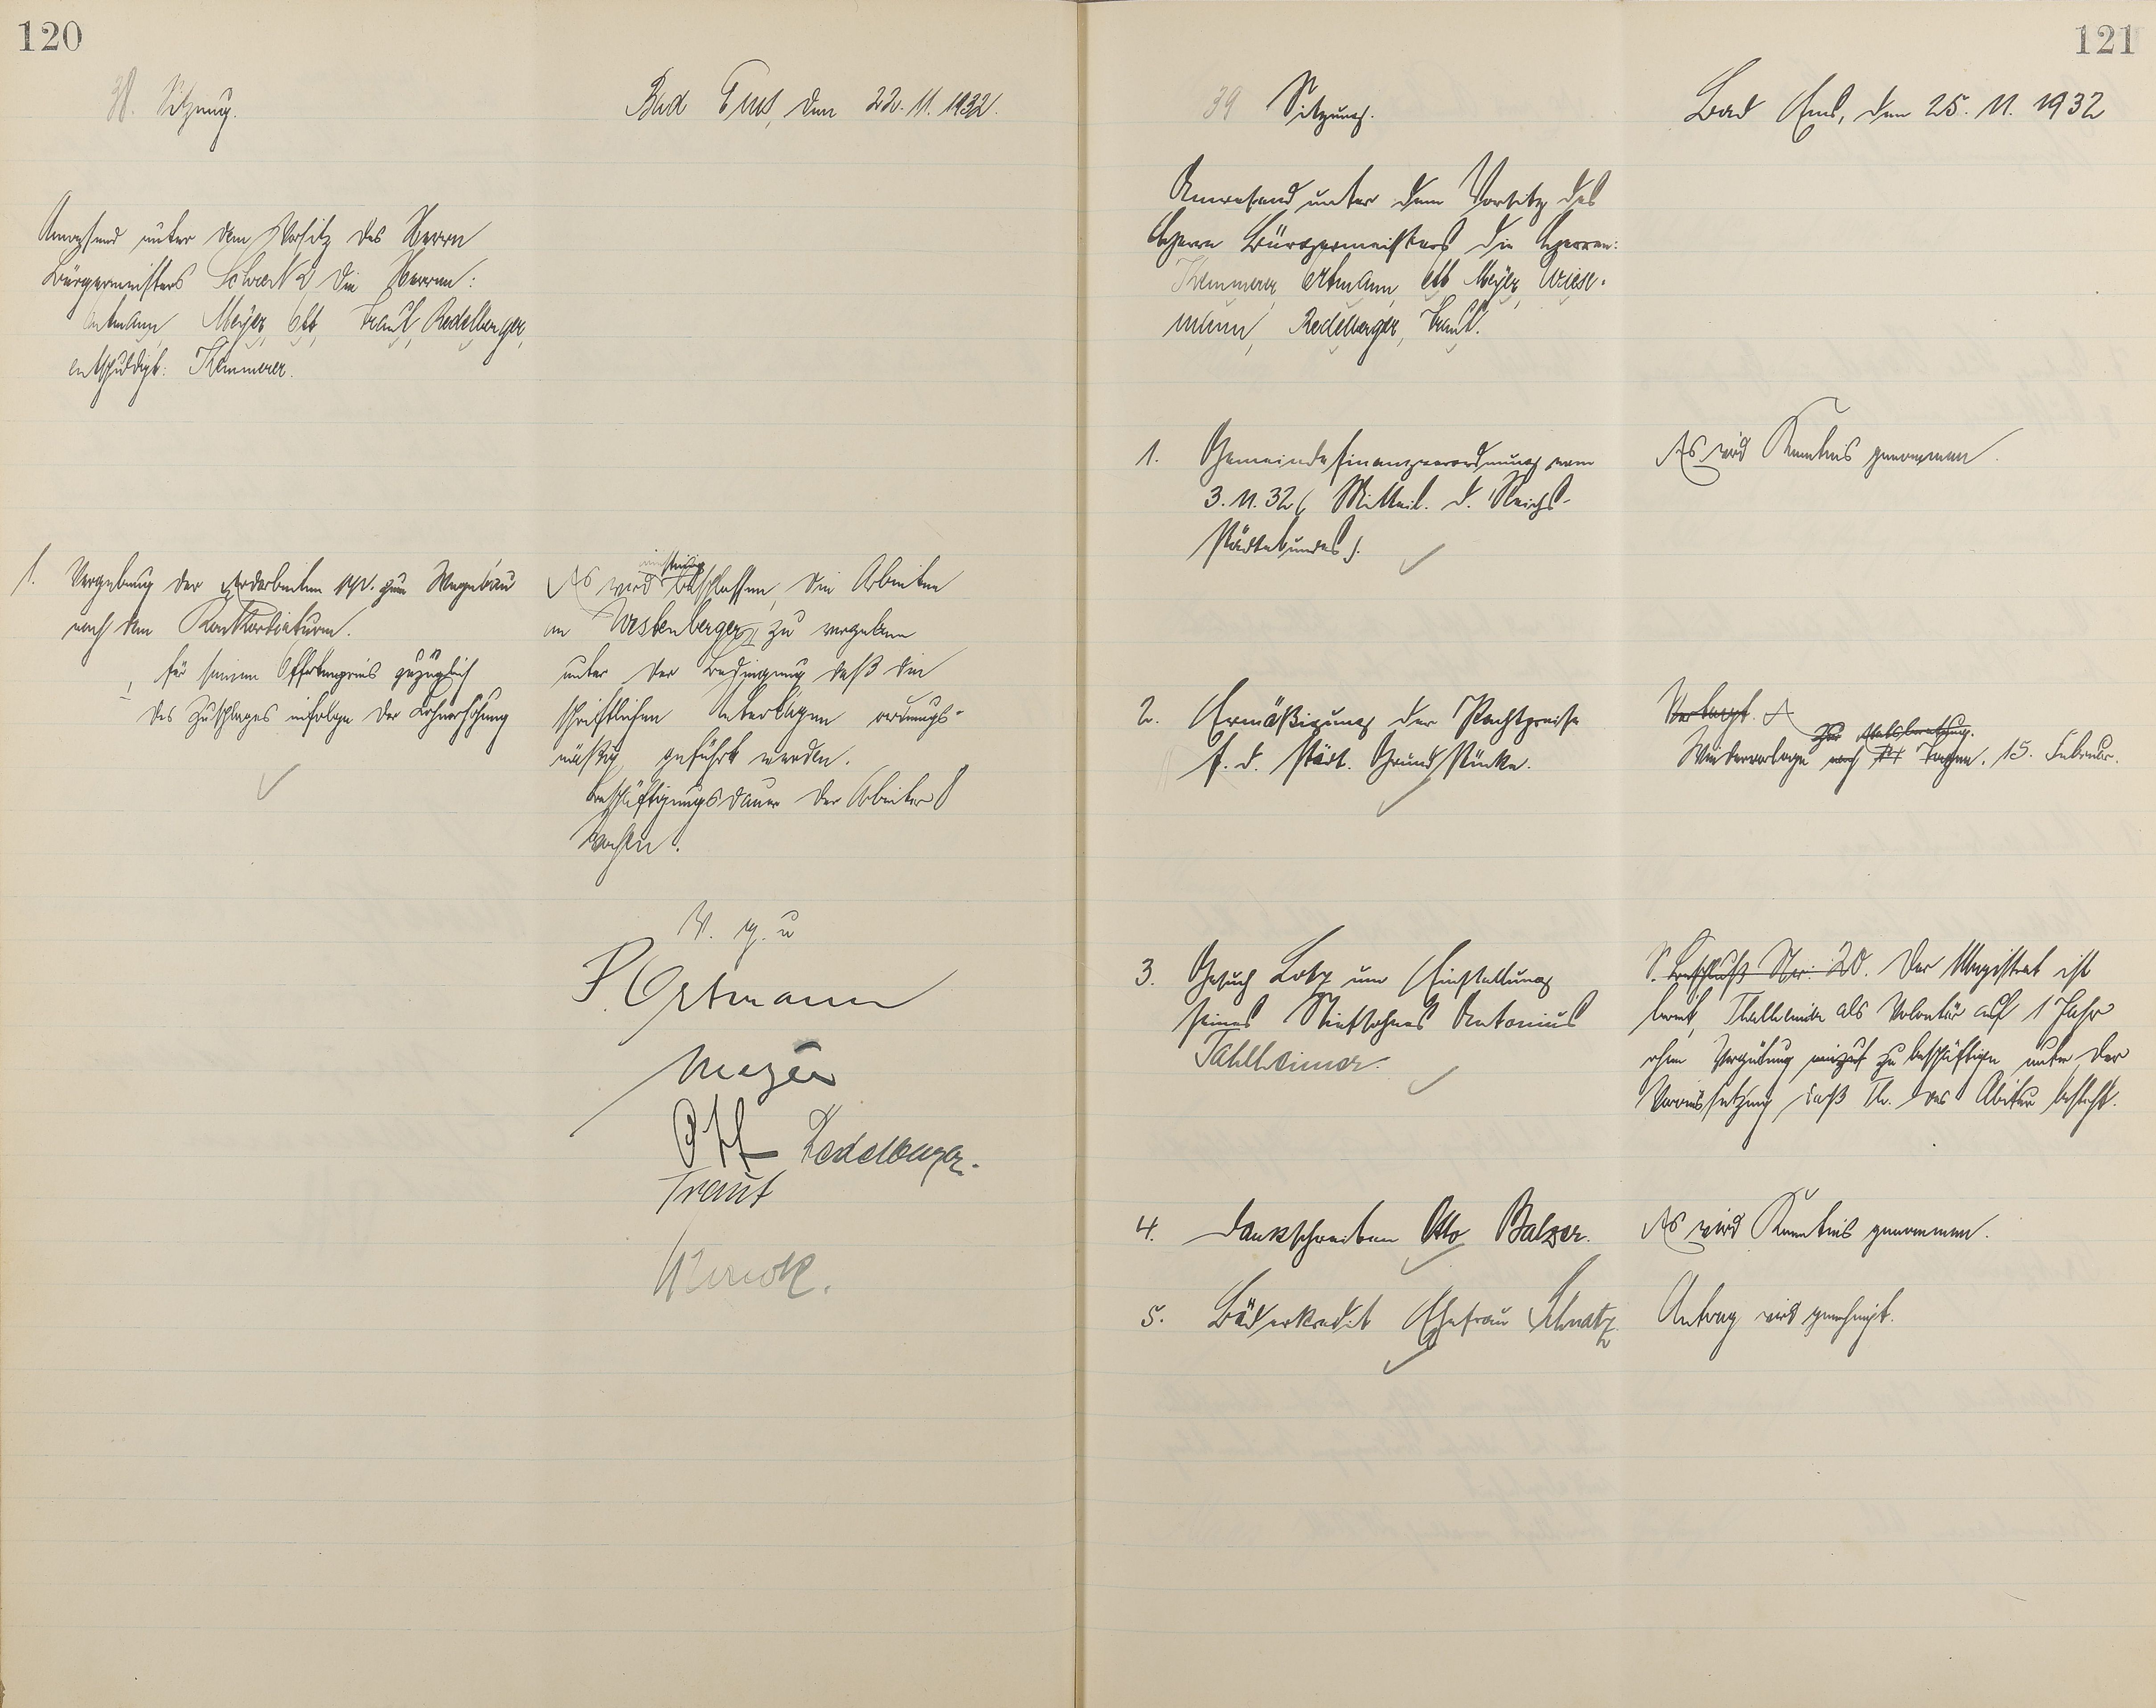 120
38. Sitzung.
Bad Ems, den 22.11.1932.
Anwesend unter dem Vorsitz des Herrn
Bürgermeisters Schreck die Herren:
Ortmann, Meyer, Ott, Traut, Redelberger,
entschuldigt: Kemmerer.
1. Vergebung der Erdarbeiten pp. zum Wegebau
nach dem Konkordiaturm.
für seinen Offertenpreis zuzüglich
des Zuschlages infolge der Lohnerhöhung
einstimmig
Es wird beschlossen, die Arbeiten
an Westenberger II zu vergeben
unter der Bedingung daß die
schriftlichen Unterlagen ordnungs-
mäßig geführt werden.
Beschäftigungsdauer der Arbeiter 8
Wochen.
V. g. u
P. Ortmann
Meyer
Ott Redelberger.
Traut
Schreck.
121
39 Sitzung.
Bad Ems, den 25.11.1932
Anwesend unter dem Vorsitz des
Herrn Bürgermeisters die Herren:
Kemmerer, Ortmann, Ott Meyer, Wiese-
mann, Redelberger, Traut.
1. Gemeindefinanzverordnung vom
3.11.32 (Mitteil. d. Reichs-
städtebundes).
Es wird Kenntnis genommen.
2. Ermäßigung der Pachtpreise
f. d. städt. Grundstücke.
Vertagt.
zur Etatsberatung.
Wiedervorlage nach Tagen. 15. Februar.
3. Gesuch Lotz um Einstellung
seines Stiefsohnes Antonius
Tahlheimer.
S. Beschluß Nr: 20. Der Magistrat ist
bereit, Thalheimer als Volontär auf 1 Jahr
ohne Vergütung zu beschäftigen unter der
Voraussetzung, daß Th. das Abitur besteht.
4. Dankschreiben Otto Balzer.
Es wird Kenntnis genommen.
5. Bäderkredit Ehefrau Schnatz
Antrag wird genehmigt.